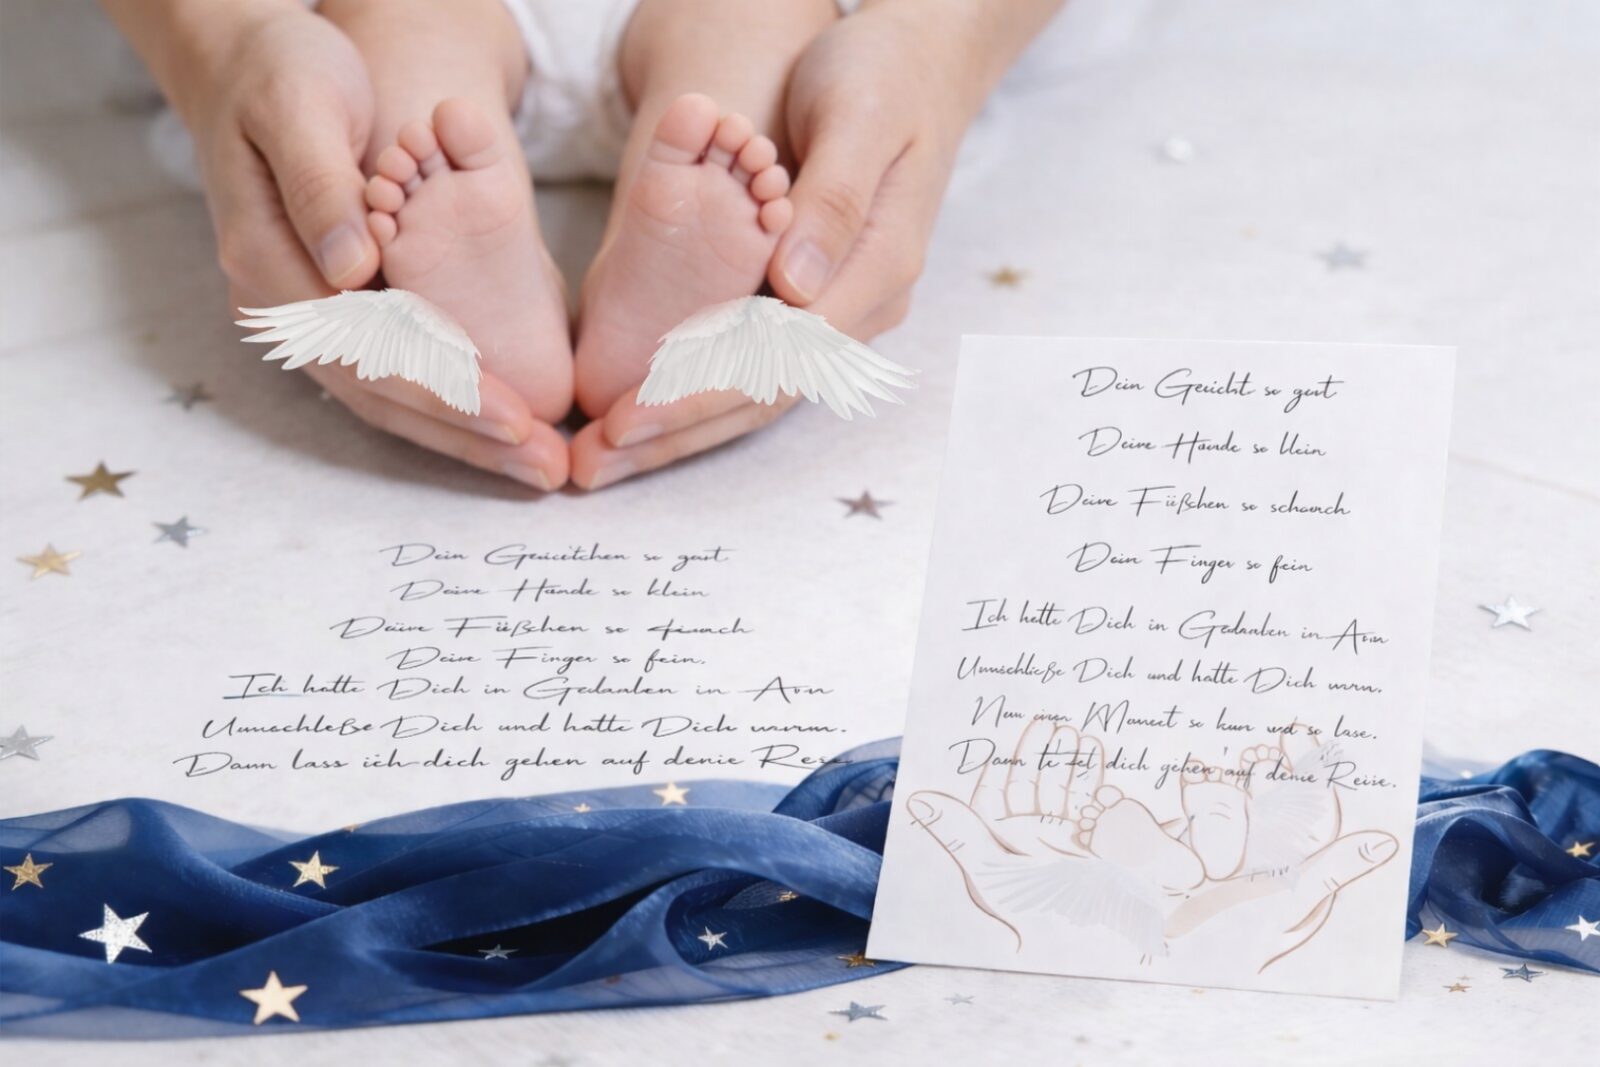 Dein Geuicitchen so gart
Deine Hände so klein
Deine Füßchen so
Deine Finger so fein.
Ich hatte Dich in Gedanken in Arm
Umschleße Dich und hatte Dich warm.
Dann lass ich dich gehen auf denie Rese
Dein Gesicht so gart
Deine Hände so klein
Deine Füßchen so schwach
Dein Finger so fein
Ich hatte Dich in Gedanken in Arm
Umschließe Dich und hatte Dich warm.
Nun einen Moment so kun und so lase.
Dann dich gehen auf denie Reise.